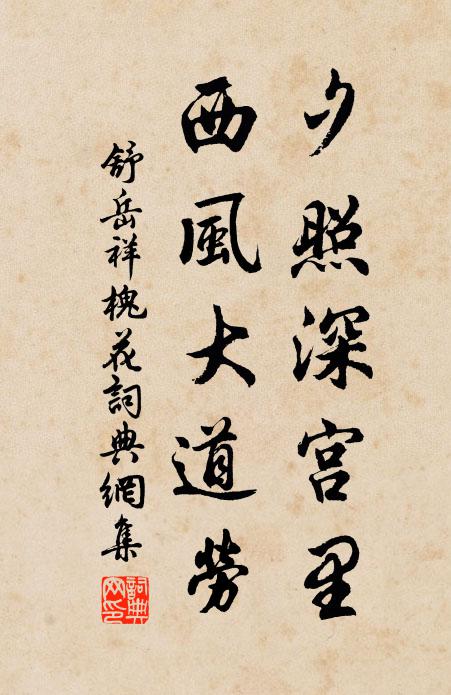 夕照深宫里
西風大道勞
舒岳祥槐花詞典網集
詞典網印